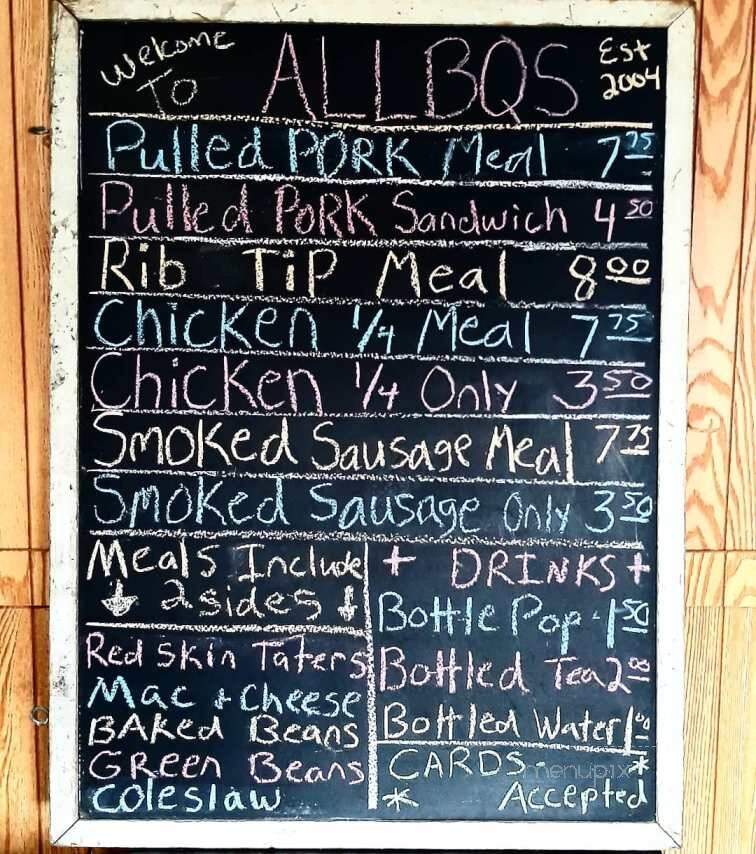 Welcome
To ALLBQS Est 2004
Pulled PORK Meal 7 75
Pulled PORK Sandwich 4 50
Rib TiP Meal 8 00
Chicken 1/4 Meal 7 75
Chicken 1/4 Only 3 50
Smoked Sausage Meal 7 75
Smoked Sausage Only 3 50
Meals Include
↓ 2 sides ↓
Red Skin Taters
Mac + Cheese
BAKed Beans
GReen Beans
Coleslaw
+ DRINKS +
Bottle Pop - 1 50
Bottled Tea 2 00
Bottled Water 1 00
CARDS - *
* Accepted
menupix